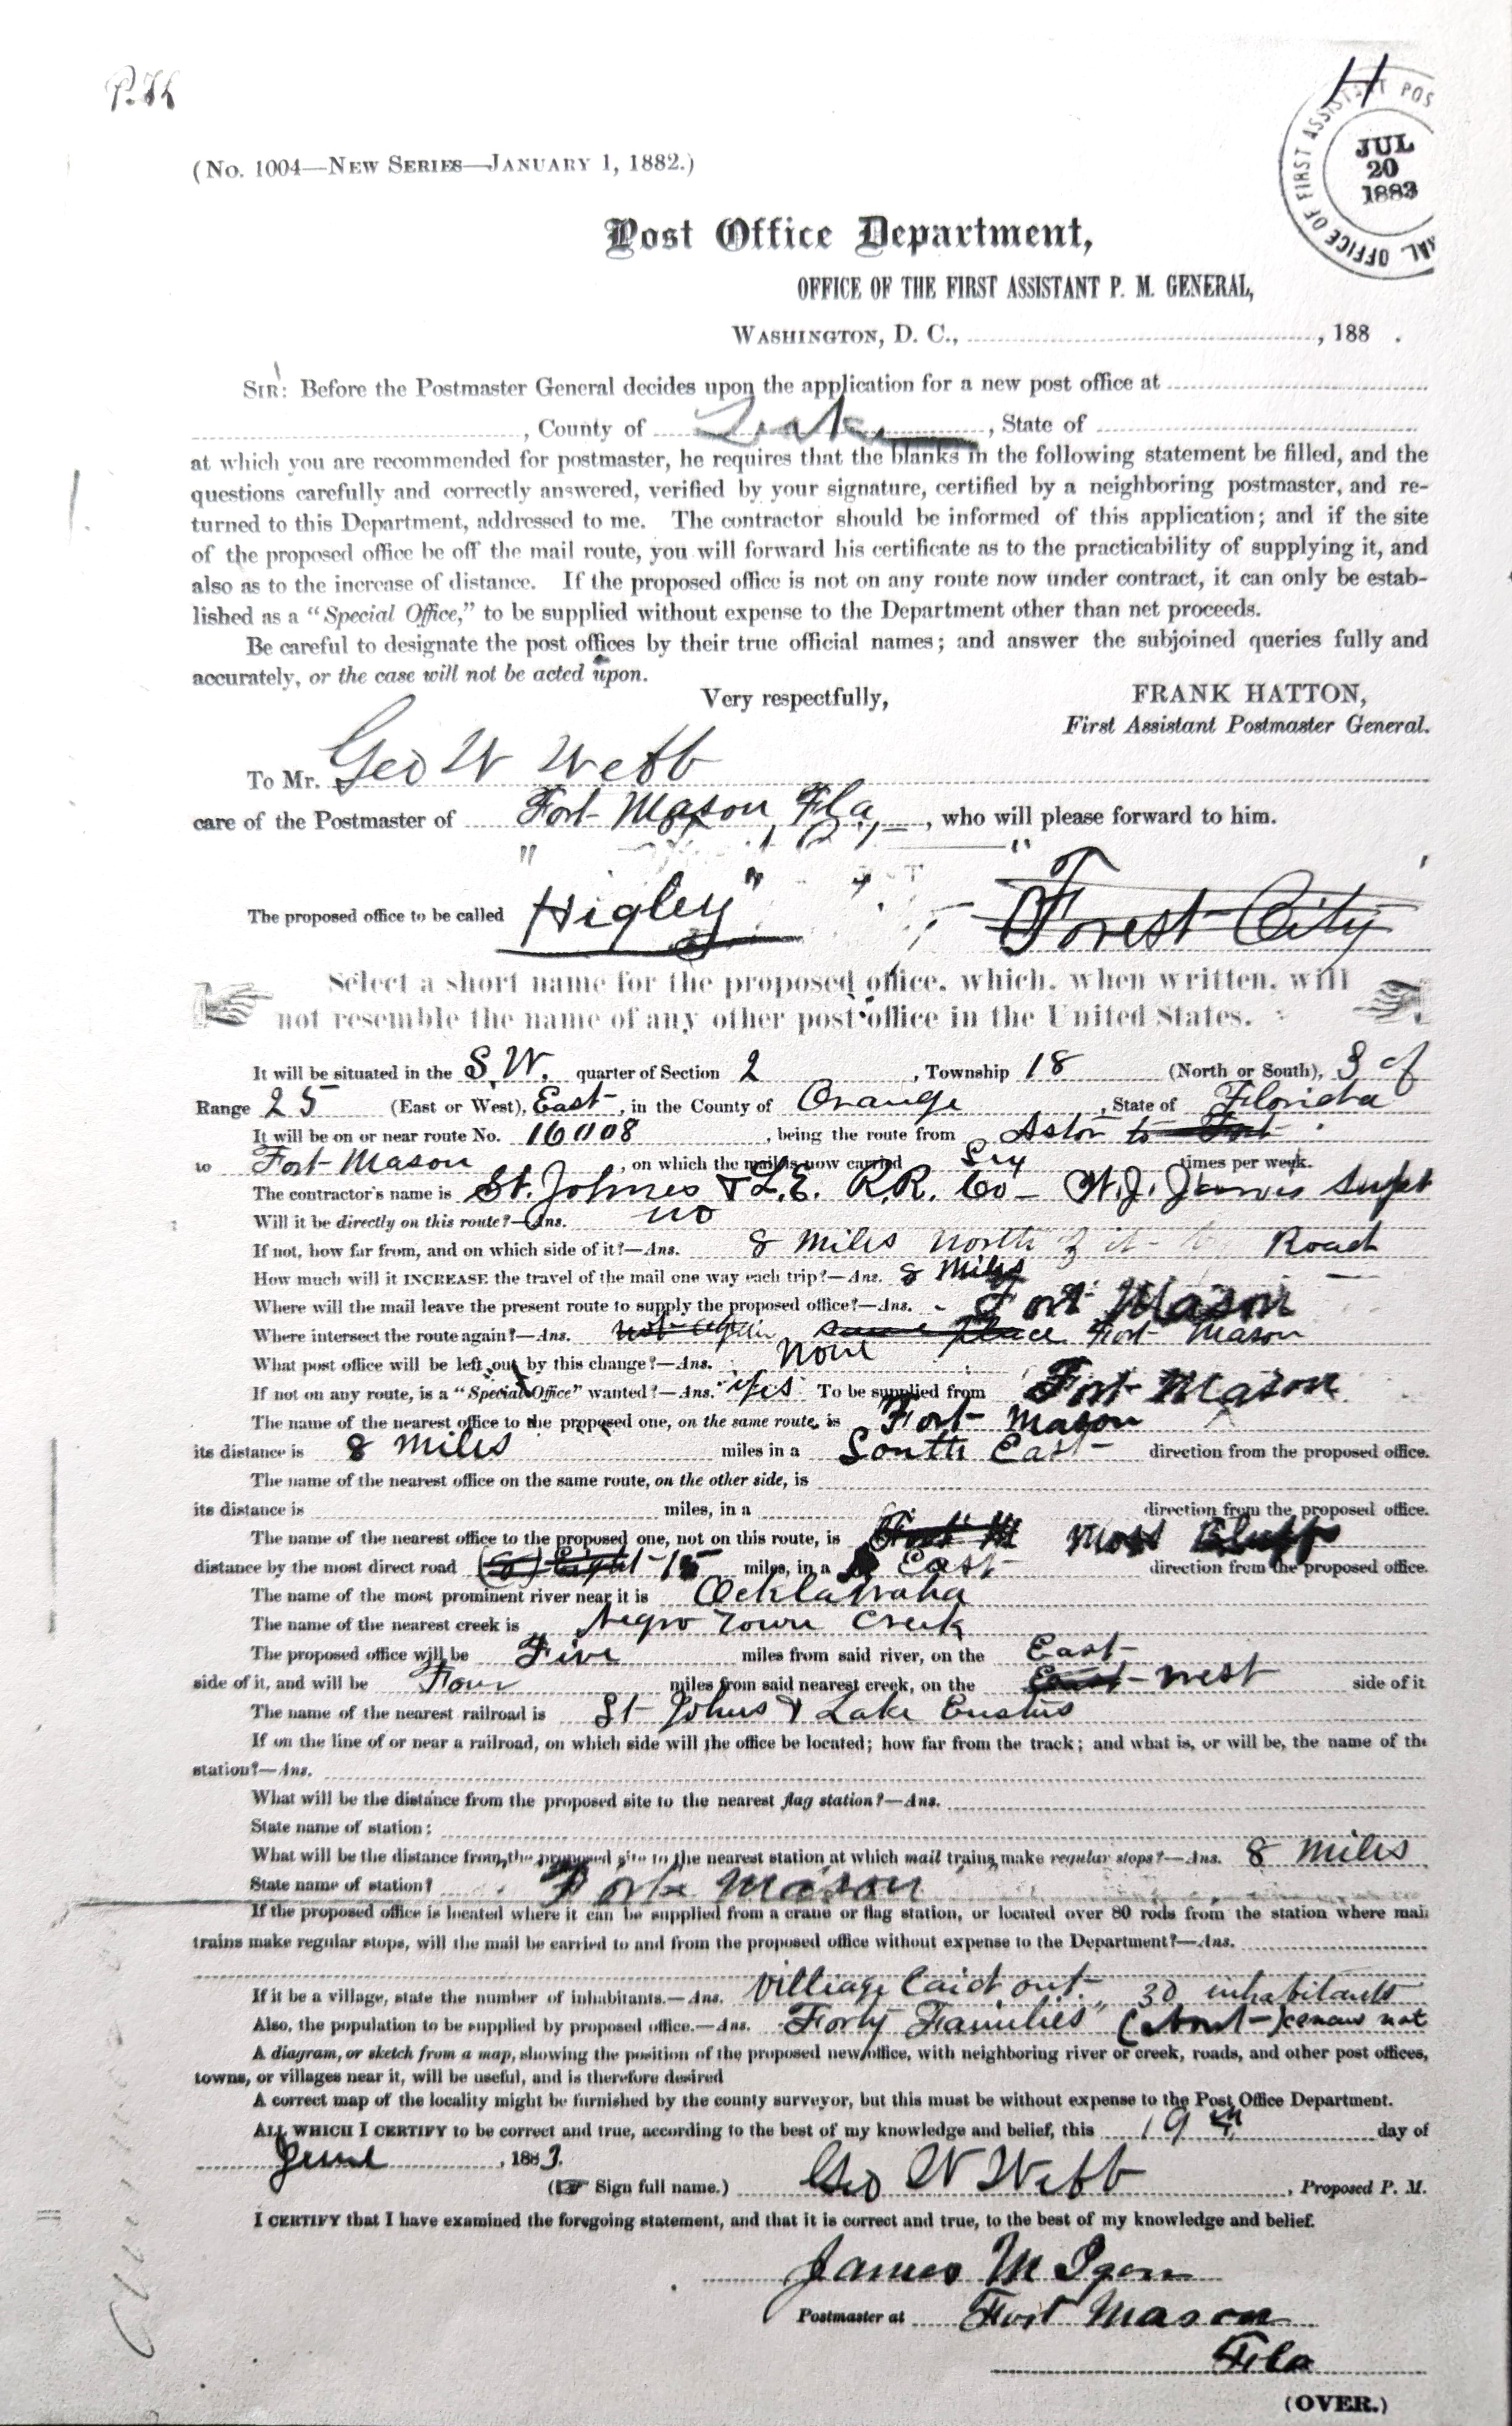 H
OFFICE OF FIRST ASSISTANT POS
JUL
20
1883
(No. 1004—New Series—January 1, 1882.)
Post Office Department,
OFFICE OF THE FIRST ASSISTANT P. M. GENERAL,
Washington, D. C., , 188 .
Sir: Before the Postmaster General decides upon the application for a new post office at
, County of Lake , State of
at which you are recommended for postmaster, he requires that the blanks in the following statement be filled, and the
questions carefully and correctly answered, verified by your signature, certified by a neighboring postmaster, and re-
turned to this Department, addressed to me. The contractor should be informed of this application; and if the site
of the proposed office be off the mail route, you will forward his certificate as to the practicability of supplying it, and
also as to the increase of distance. If the proposed office is not on any route now under contract, it can only be estab-
lished as a "Special Office," to be supplied without expense to the Department other than net proceeds.
Be careful to designate the post offices by their true official names; and answer the subjoined queries fully and
accurately, or the case will not be acted upon.
Very respectfully, FRANK HATTON,
First Assistant Postmaster General.
To Mr. Geo W Webb
care of the Postmaster of Fort Mason Fla , who will please forward to him.
The proposed office to be called "Higley" Forest City
Select a short name for the proposed office, which, when written, will
not resemble the name of any other post office in the United States.
It will be situated in the S.W. quarter of Section 2 , Township 18 (North or South), S of
Range 25 (East or West), East , in the County of Orange , State of Florida
It will be on or near route No. 16008 , being the route from Astor to Fort
to Fort Mason , on which the mail is now carried Six times per week.
The contractor's name is St. Johns & L.E. R.R. Co - W.J. Supt
Will it be directly on this route?—Ans. no
If not, how far from, and on which side of it?—Ans. 8 miles north of it by Road
How much will it INCREASE the travel of the mail one way each trip?—Ans. 8 Miles
Where will the mail leave the present route to supply the proposed office?—Ans. Fort Mason
Where intersect the route again?—Ans. same Place Fort Mason
What post office will be left out by this change?—Ans. None
If not on any route, is a "Special Office" wanted?—Ans. Yes To be supplied from Fort Mason
The name of the nearest office to the proposed one, on the same route, is Fort Mason
its distance is 8 miles miles in a South East direction from the proposed office.
The name of the nearest office on the same route, on the other side, is
its distance is miles, in a direction from the proposed office.
The name of the nearest office to the proposed one, not on this route, is Fort M Moss Bluff
distance by the most direct road (8) Eight 15 miles, in a East direction from the proposed office.
The name of the most prominent river near it is Ocklawaha
The name of the nearest creek is Negro Town Creek
The proposed office will be Five miles from said river, on the East
side of it, and will be Four miles from said nearest creek, on the East West side of it
The name of the nearest railroad is St Johns & Lake Eustus
If on the line of or near a railroad, on which side will the office be located; how far from the track; and what is, or will be, the name of the
station?—Ans.
What will be the distance from the proposed site to the nearest flag station?—Ans.
State name of station:
What will be the distance from the proposed site to the nearest station at which mail trains make regular stops?—Ans. 8 Miles
State name of station? Fort Mason
If the proposed office is located where it can be supplied from a crane or flag station, or located over 80 rods from the station where mail
trains make regular stops, will the mail be carried to and from the proposed office without expense to the Department?—Ans.
If it be a village, state the number of inhabitants.—Ans. Villiage laid out. 30 inhabitants
Also, the population to be supplied by proposed office.—Ans. Forty Families not
A diagram, or sketch from a map, showing the position of the proposed new office, with neighboring river or creek, roads, and other post offices,
towns, or villages near it, will be useful, and is therefore desired
A correct map of the locality might be furnished by the county surveyor, but this must be without expense to the Post Office Department.
All which I certify to be correct and true, according to the best of my knowledge and belief, this 19th day of
June , 1883.
(Sign full name.) Geo W Webb , Proposed P. M.
I certify that I have examined the foregoing statement, and that it is correct and true, to the best of my knowledge and belief.
James M Igou
Postmaster at Fort Mason
Fla
(OVER.)